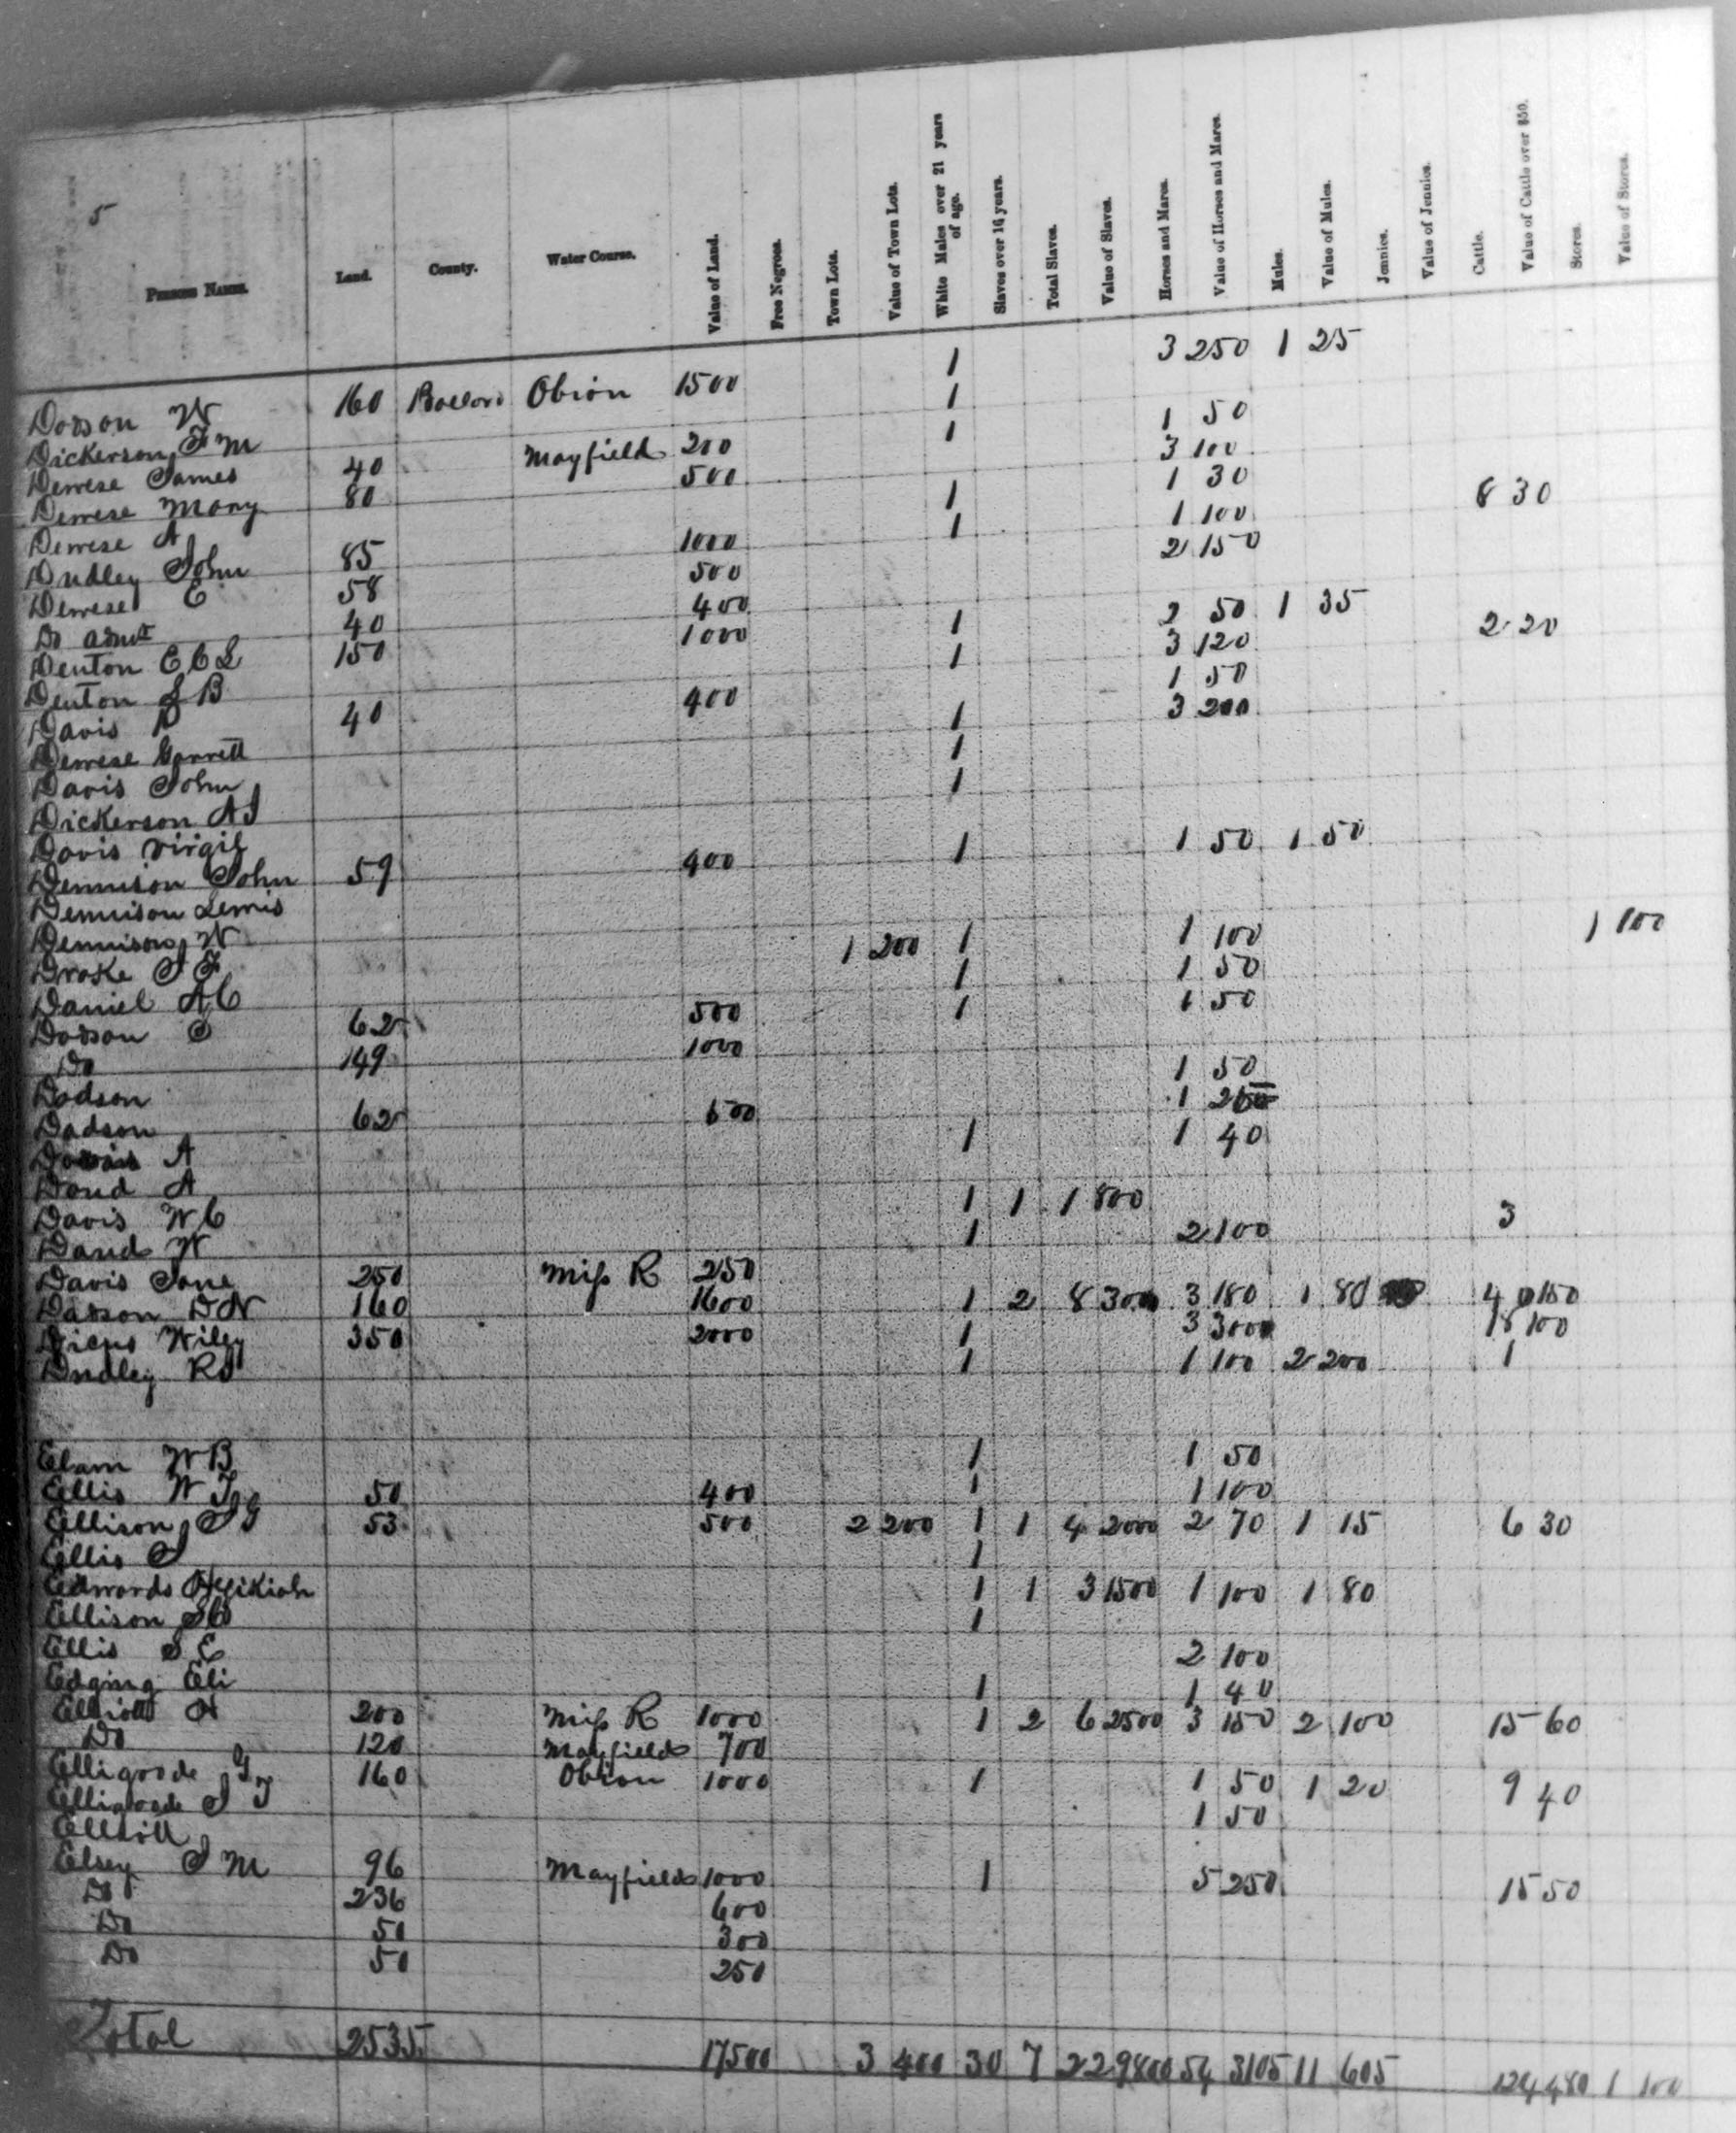 5
Persons Names. Land. County. Water Course. Value of Land. Free Negroes. Town Lots. Value of Town Lots. White Males over 21 years of age. Slaves over 16 years. Total Slaves. Value of Slaves. Horses and Mares. Value of Horses and Mares. Mules. Value of Mules. Jennies. Value of Jennies. Cattle. Value of Cattle over $50. Stores. Value of Stores.
Dodson W 160 Obion 1500 1 3 250 1 25
Dickerson F M 1
Dewese James 40 Mayfield 200 1 1 50
Dewese Mary 80 500 3 100
Dewese A 1 1 30
Dudley John 85 1000 1 1 100 8 30
Dewese E 58 500 2 150
Do admt 40 400
Denton E C L 150 1000 1 2 50 1 35
Denton J B 1 3 120 2 20
Davis D 40 400 1 50
Dewese Garrett 1 3 200
Davis John 1
Dickerson A J 1
Davis Virgil
Dennison John 59 400 1 1 50 1 50
Dennison Lewis
Dennison W
Drake J F 1 200 1 1 100 1 100
Daniel A C 1 1 50
Dodson J 62 500 1 1 50
Do 149 1000
Dodson 1 50
Dodson 62 600 1
A 1 1 40
David A
Davis W C 1 1 1 800
David W 1 2 100 3
Davis Jane 250 Miss R 250
Dodson D N 160 1600 1 2 8 3 180 1 80 4
Wiley 350 2000 1 3 100
Dudley R J 1 1 100 2 200 1
Elam W B 1 1 50
Ellis W T 50 400 1 1 100
Ellison J G 53 500 2 200 1 1 4 2000 2 70 1 15 6 30
Ellis J 1
Edwards Hezikiah 1 1 3 1500 1 100 1 80
Ellison 1
Ellis S E 2 100
Edging Eli 1 1 40
Elliott H 200 Miss R 1000 1 2 6 2500 3 150 2 100 15 60
Do 120 Mayfield 700
Elligoode G T 160 Obion 1000 1 1 50 1 20 9 40
Elligoode J 1 50
Elliott
Elsey J M 96 Mayfield 1000 1 5 250 15 50
Do 236 600
Do 50 300
Do 50 250
Total 2535 17500 3 400 30 7 22 9800 54 3105 11 605 124 480 1 100